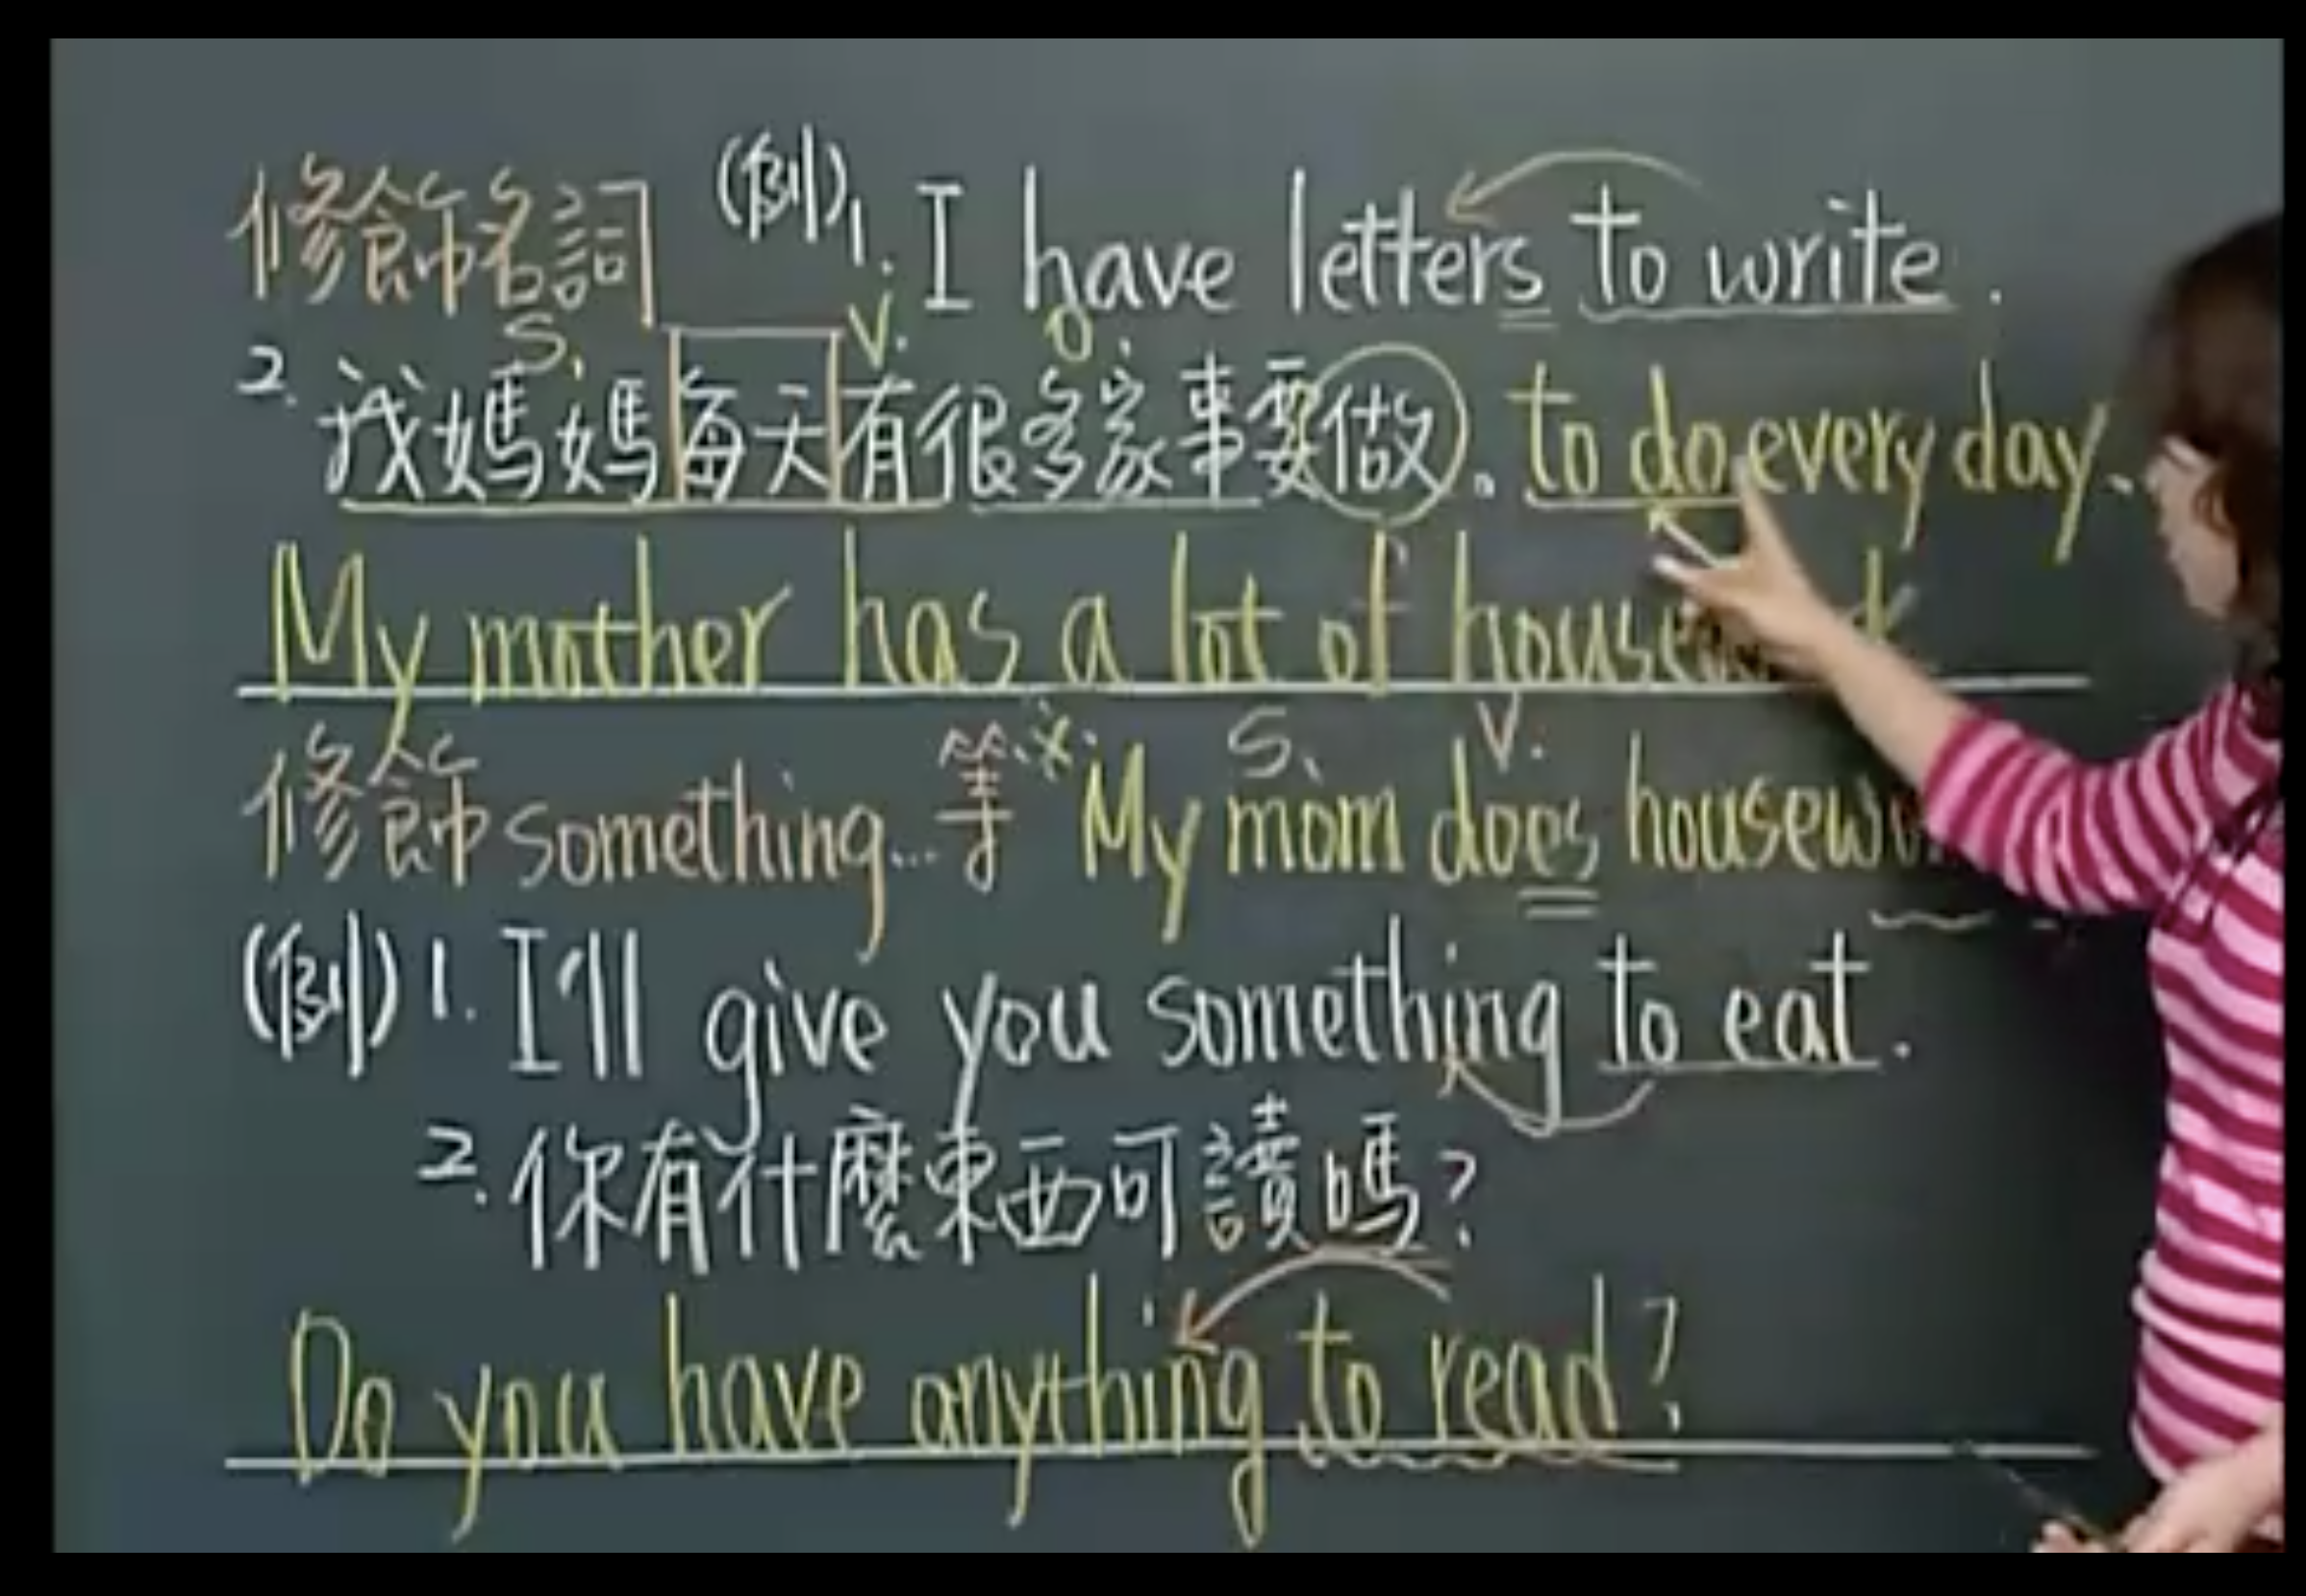 修飾名詞 (例) 1. I have letters to write.
S. V. O.
2. 我媽媽每天有很多家事要做。to do every day.
My mother has a lot of
修飾something...等 S. V.
My mom does
(例) 1. I'll give you something to eat.
2. 你有什麼東西可讀嗎?
Do you have anything to read?